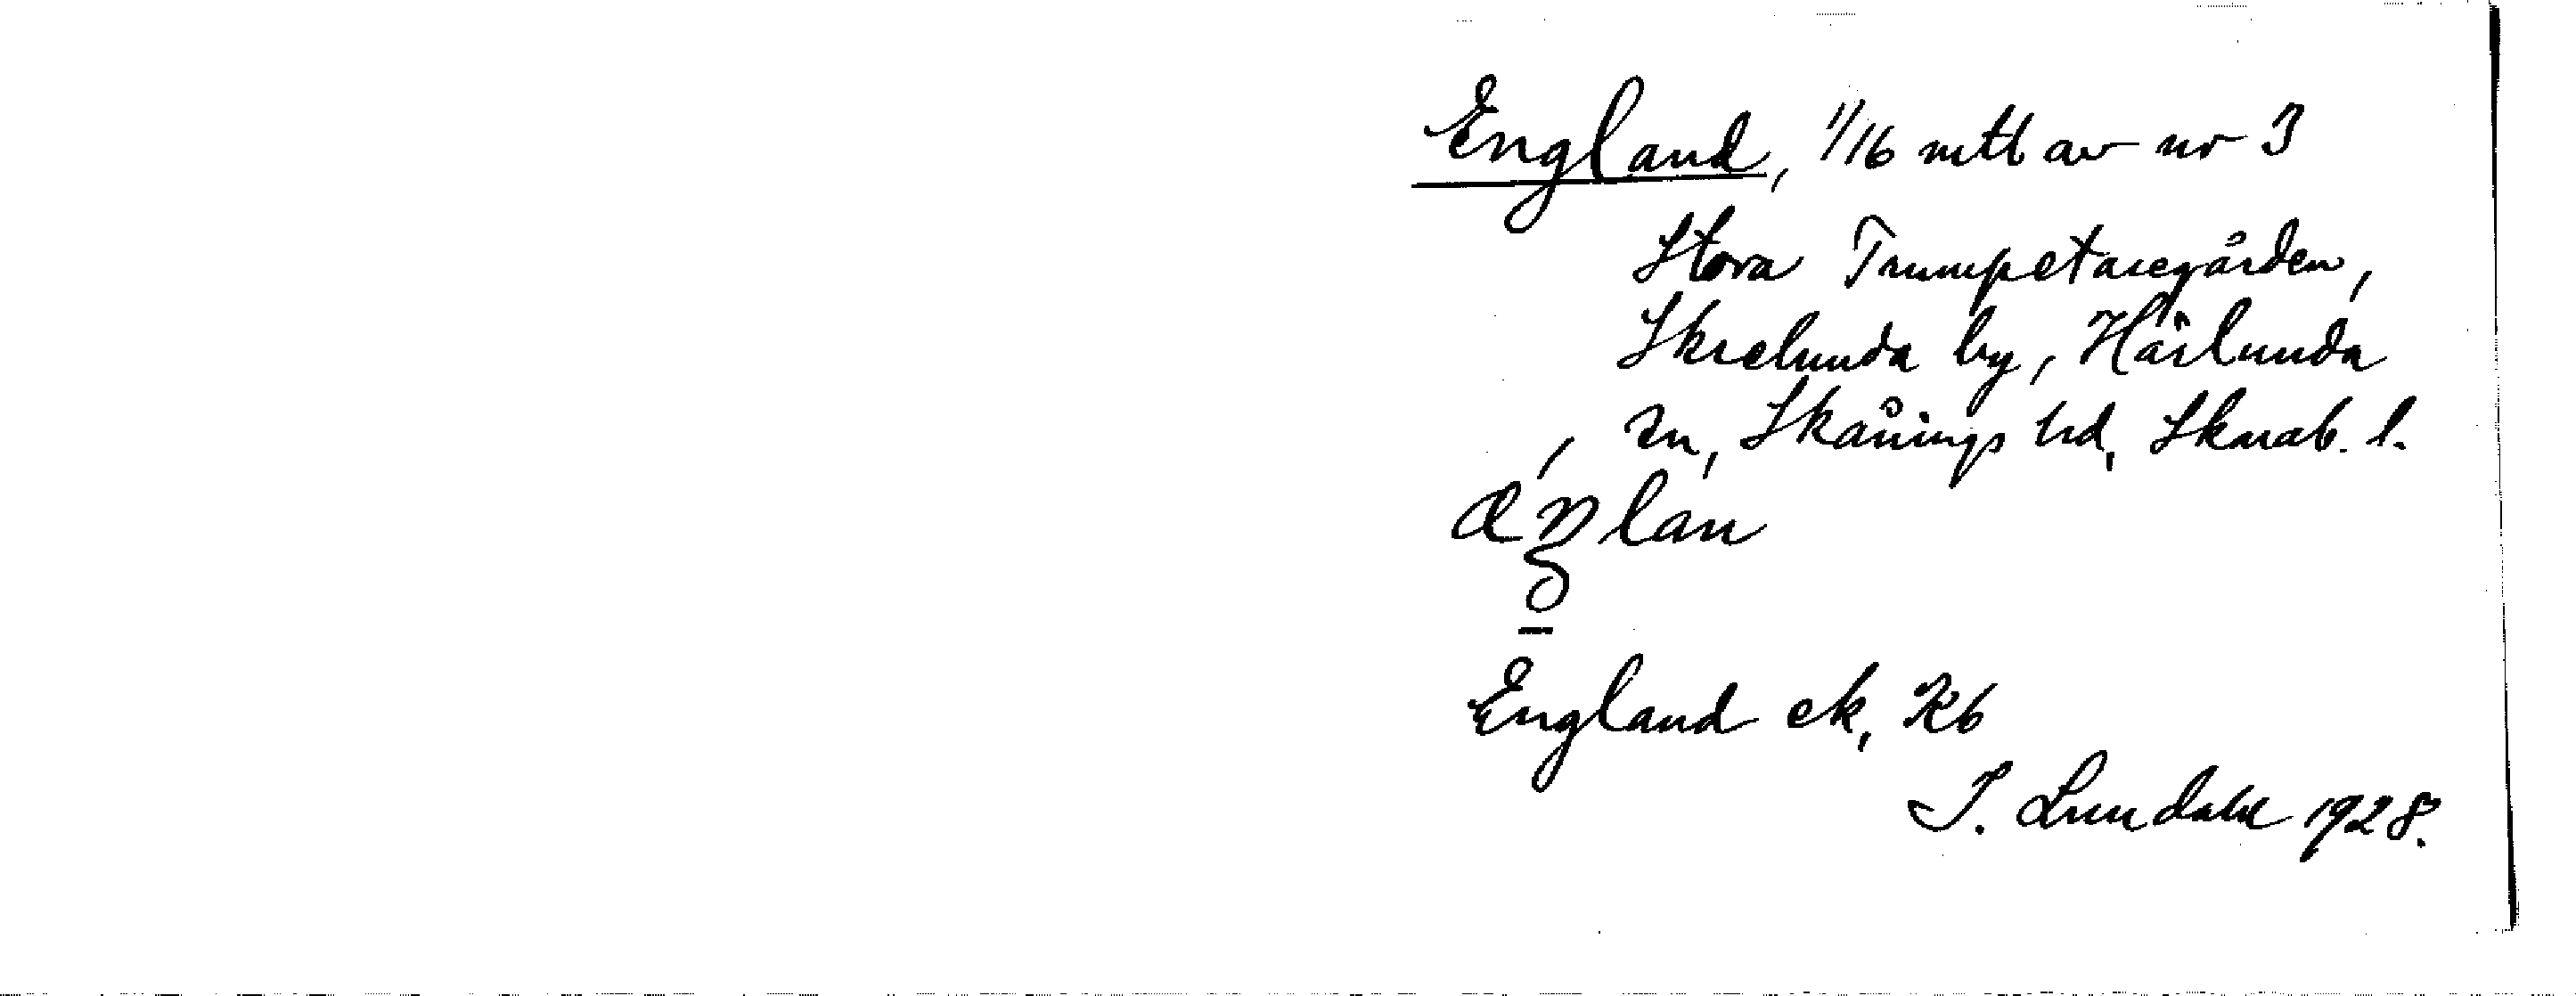 England, 1/16 mtl av nr 3
Stora Trumpetaregården,
Skrelunda by, Härlunda
sn, Skånings hd, Skarab. l.
England ek, Kb
I. Lundahl 1928.